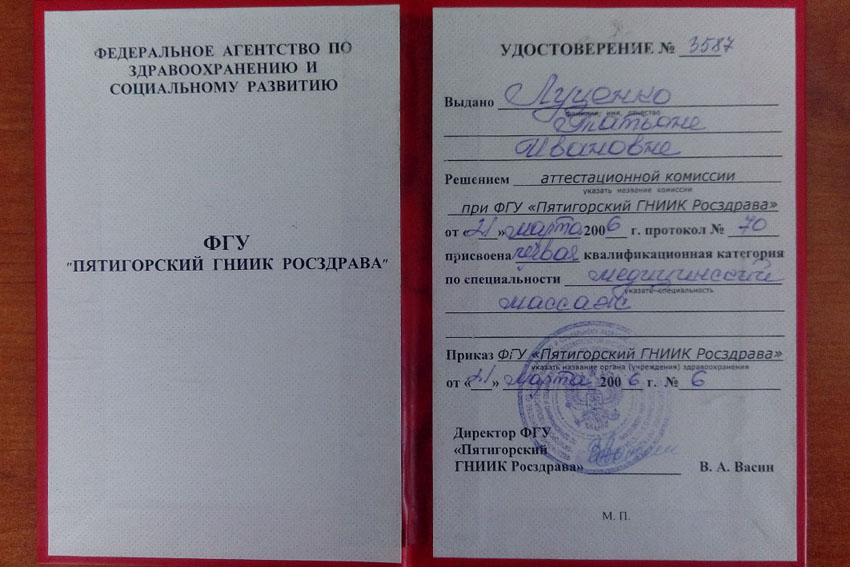 ФЕДЕРАЛЬНОЕ АГЕНТСТВО ПО
ЗДРАВООХРАНЕНИЮ И
СОЦИАЛЬНОМУ РАЗВИТИЮ
ФГУ
"ПЯТИГОРСКИЙ ГНИИК РОСЗДРАВА"
УДОСТОВЕРЕНИЕ № 3587
Выдано Луценко
фамилия, имя, отчество
Татьяне
Ивановне
Решением аттестационной комиссии
указать название комиссии
при ФГУ «Пятигорский ГНИИК Росздрава»
от «21» марта 2006 г. протокол № 70
присвоена первая квалификационная категория
по специальности медицинский
указать специальность
массаж
Приказ ФГУ «Пятигорский ГНИИК Росздрава»
указать название органа (учреждения) здравоохранения
от «21» марта 2006 г. № 6
Директор ФГУ
«Пятигорский
ГНИИК Росздрава» В. А. Васин
М. П.